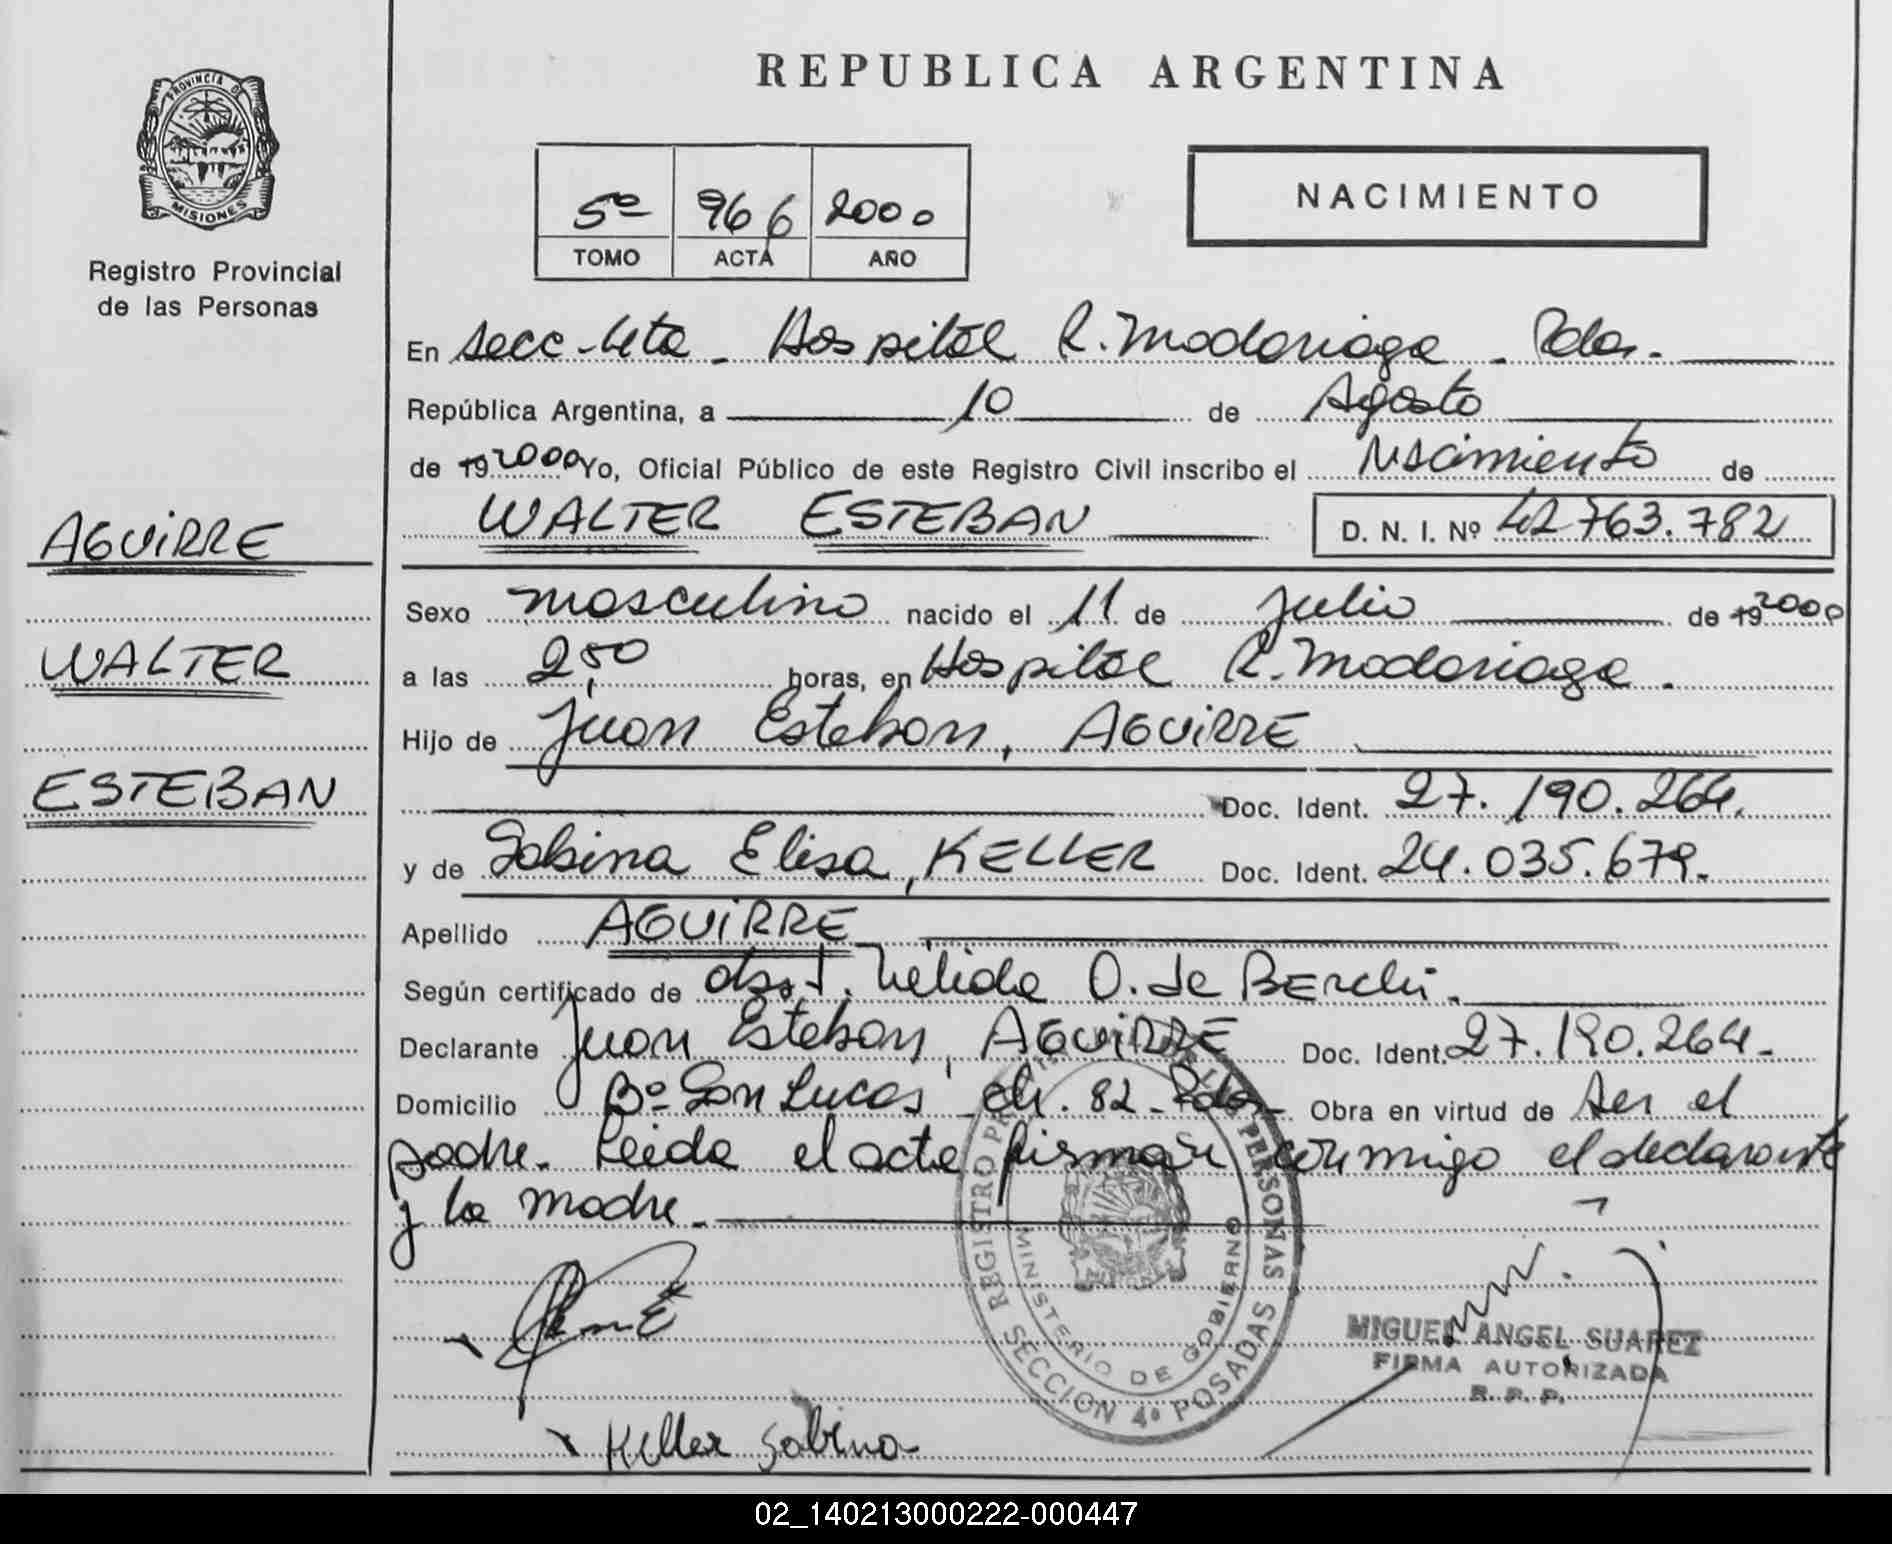 REPUBLICA ARGENTINA
PROVINCIA DE
MISIONES
Registro Provincial
de las Personas
5º 966 2000
TOMO ACTA AÑO
NACIMIENTO
En Secc-4ta - Hospital R. Madariaga - Pdas.
República Argentina, a 10 de Agosto
de 19 2000 Yo, Oficial Público de este Registro Civil inscribo el Nacimiento de
WALTER ESTEBAN D. N. I. Nº 42.763.782
AGUIRRE
WALTER
ESTEBAN
Sexo masculino nacido el 11 de Julio de 19 2000
a las 2,50 horas, en Hospital R. Madariaga.
Hijo de Juan Esteban, AGUIRRE
Doc. Ident. 27.190.264.
y de Sabina Elisa, KELLER Doc. Ident. 24.035.679.
Apellido AGUIRRE
Según certificado de obst. Nelida O. de BERchi.
Declarante Juan Esteban, AGUIRRE Doc. Ident. 27.190.264.
Domicilio Bº San Lucas ch. 82 - Pdas - Obra en virtud de ser el
padre. Leida el acta firman conmigo el declarante
y la madre.
REGISTRO PERSONAS
MINISTERIO DE GOBIERNO
SECCION 4ª POSADAS
MIGUEL ANGEL SUAREZ
FIRMA AUTORIZADA
R. P. P.
Keller Sabina
02_140213000222-000447